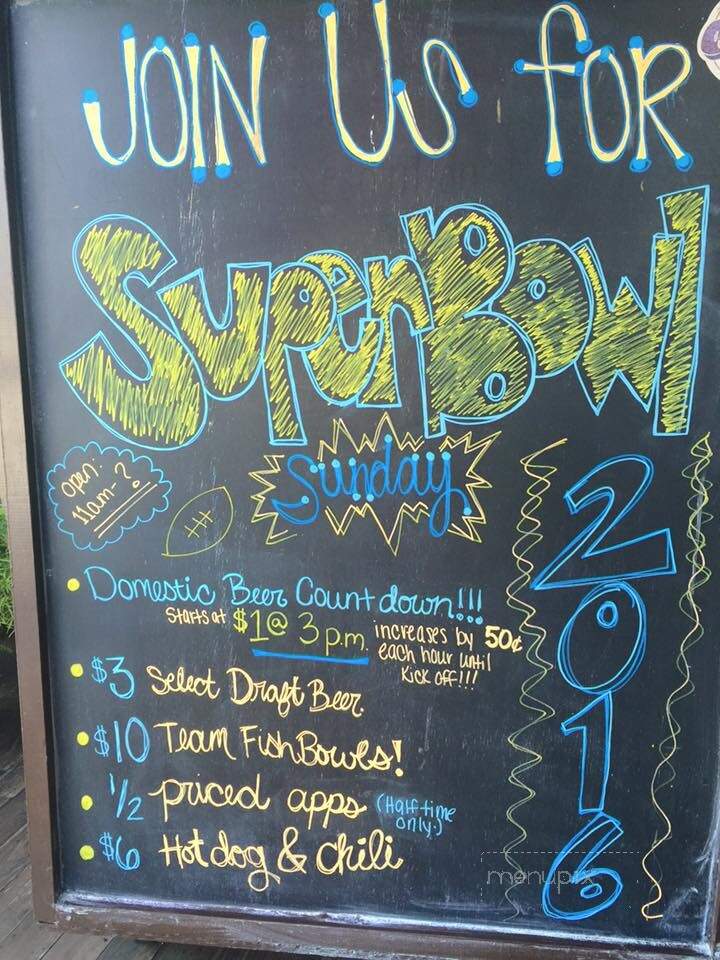 JOIN US FOR
SuperBowl
Sunday
open:
11am-?
2016
Domestic Beer Countdown!!!
Starts at $1@ 3 p.m. increases by 50¢
each hour until
Kick off!!!
$3 Select Draft Beer
$10 Team FishBowls!
1/2 priced apps (Half time
only.)
$6 Hotdog & Chili
menupix